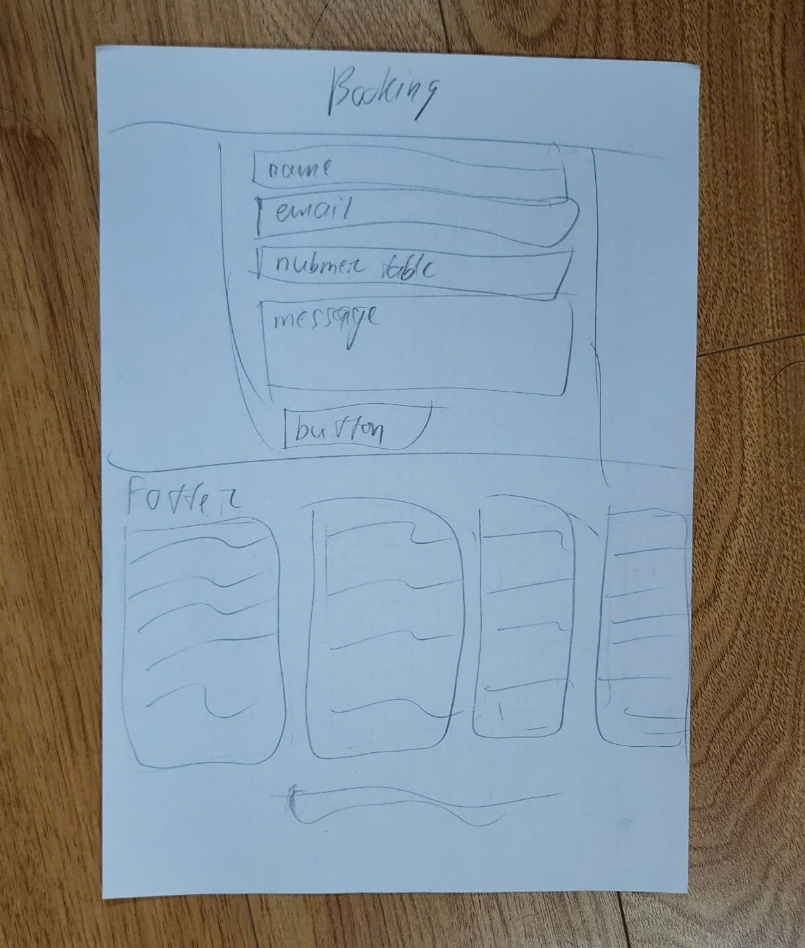 Booking
name
email
nubmer table
message
button
Footer